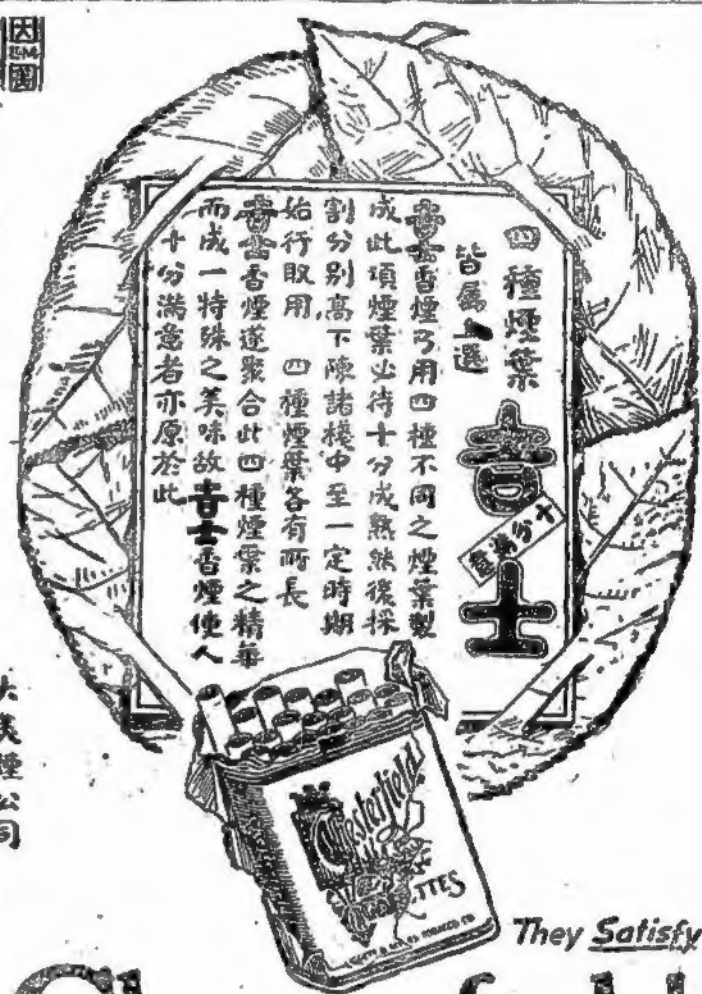 四種煙葉
皆屬上選
吉士
十分滿意
吉士香煙乃用四種不同之煙葉製
成此項煙葉必待十分成熟然後採
割分别高下陳諸棧中至一定時期
始行取用 四種煙葉各有所長
吉士香煙遂聚合此四種煙葉之精華
而成一特殊之美味故吉士香煙使人
十分滿意者亦原於此
大美煙公司
Chesterfield
CIGARETTES
LIGGETT & MYERS TOBACCO CO.
They Satisfy